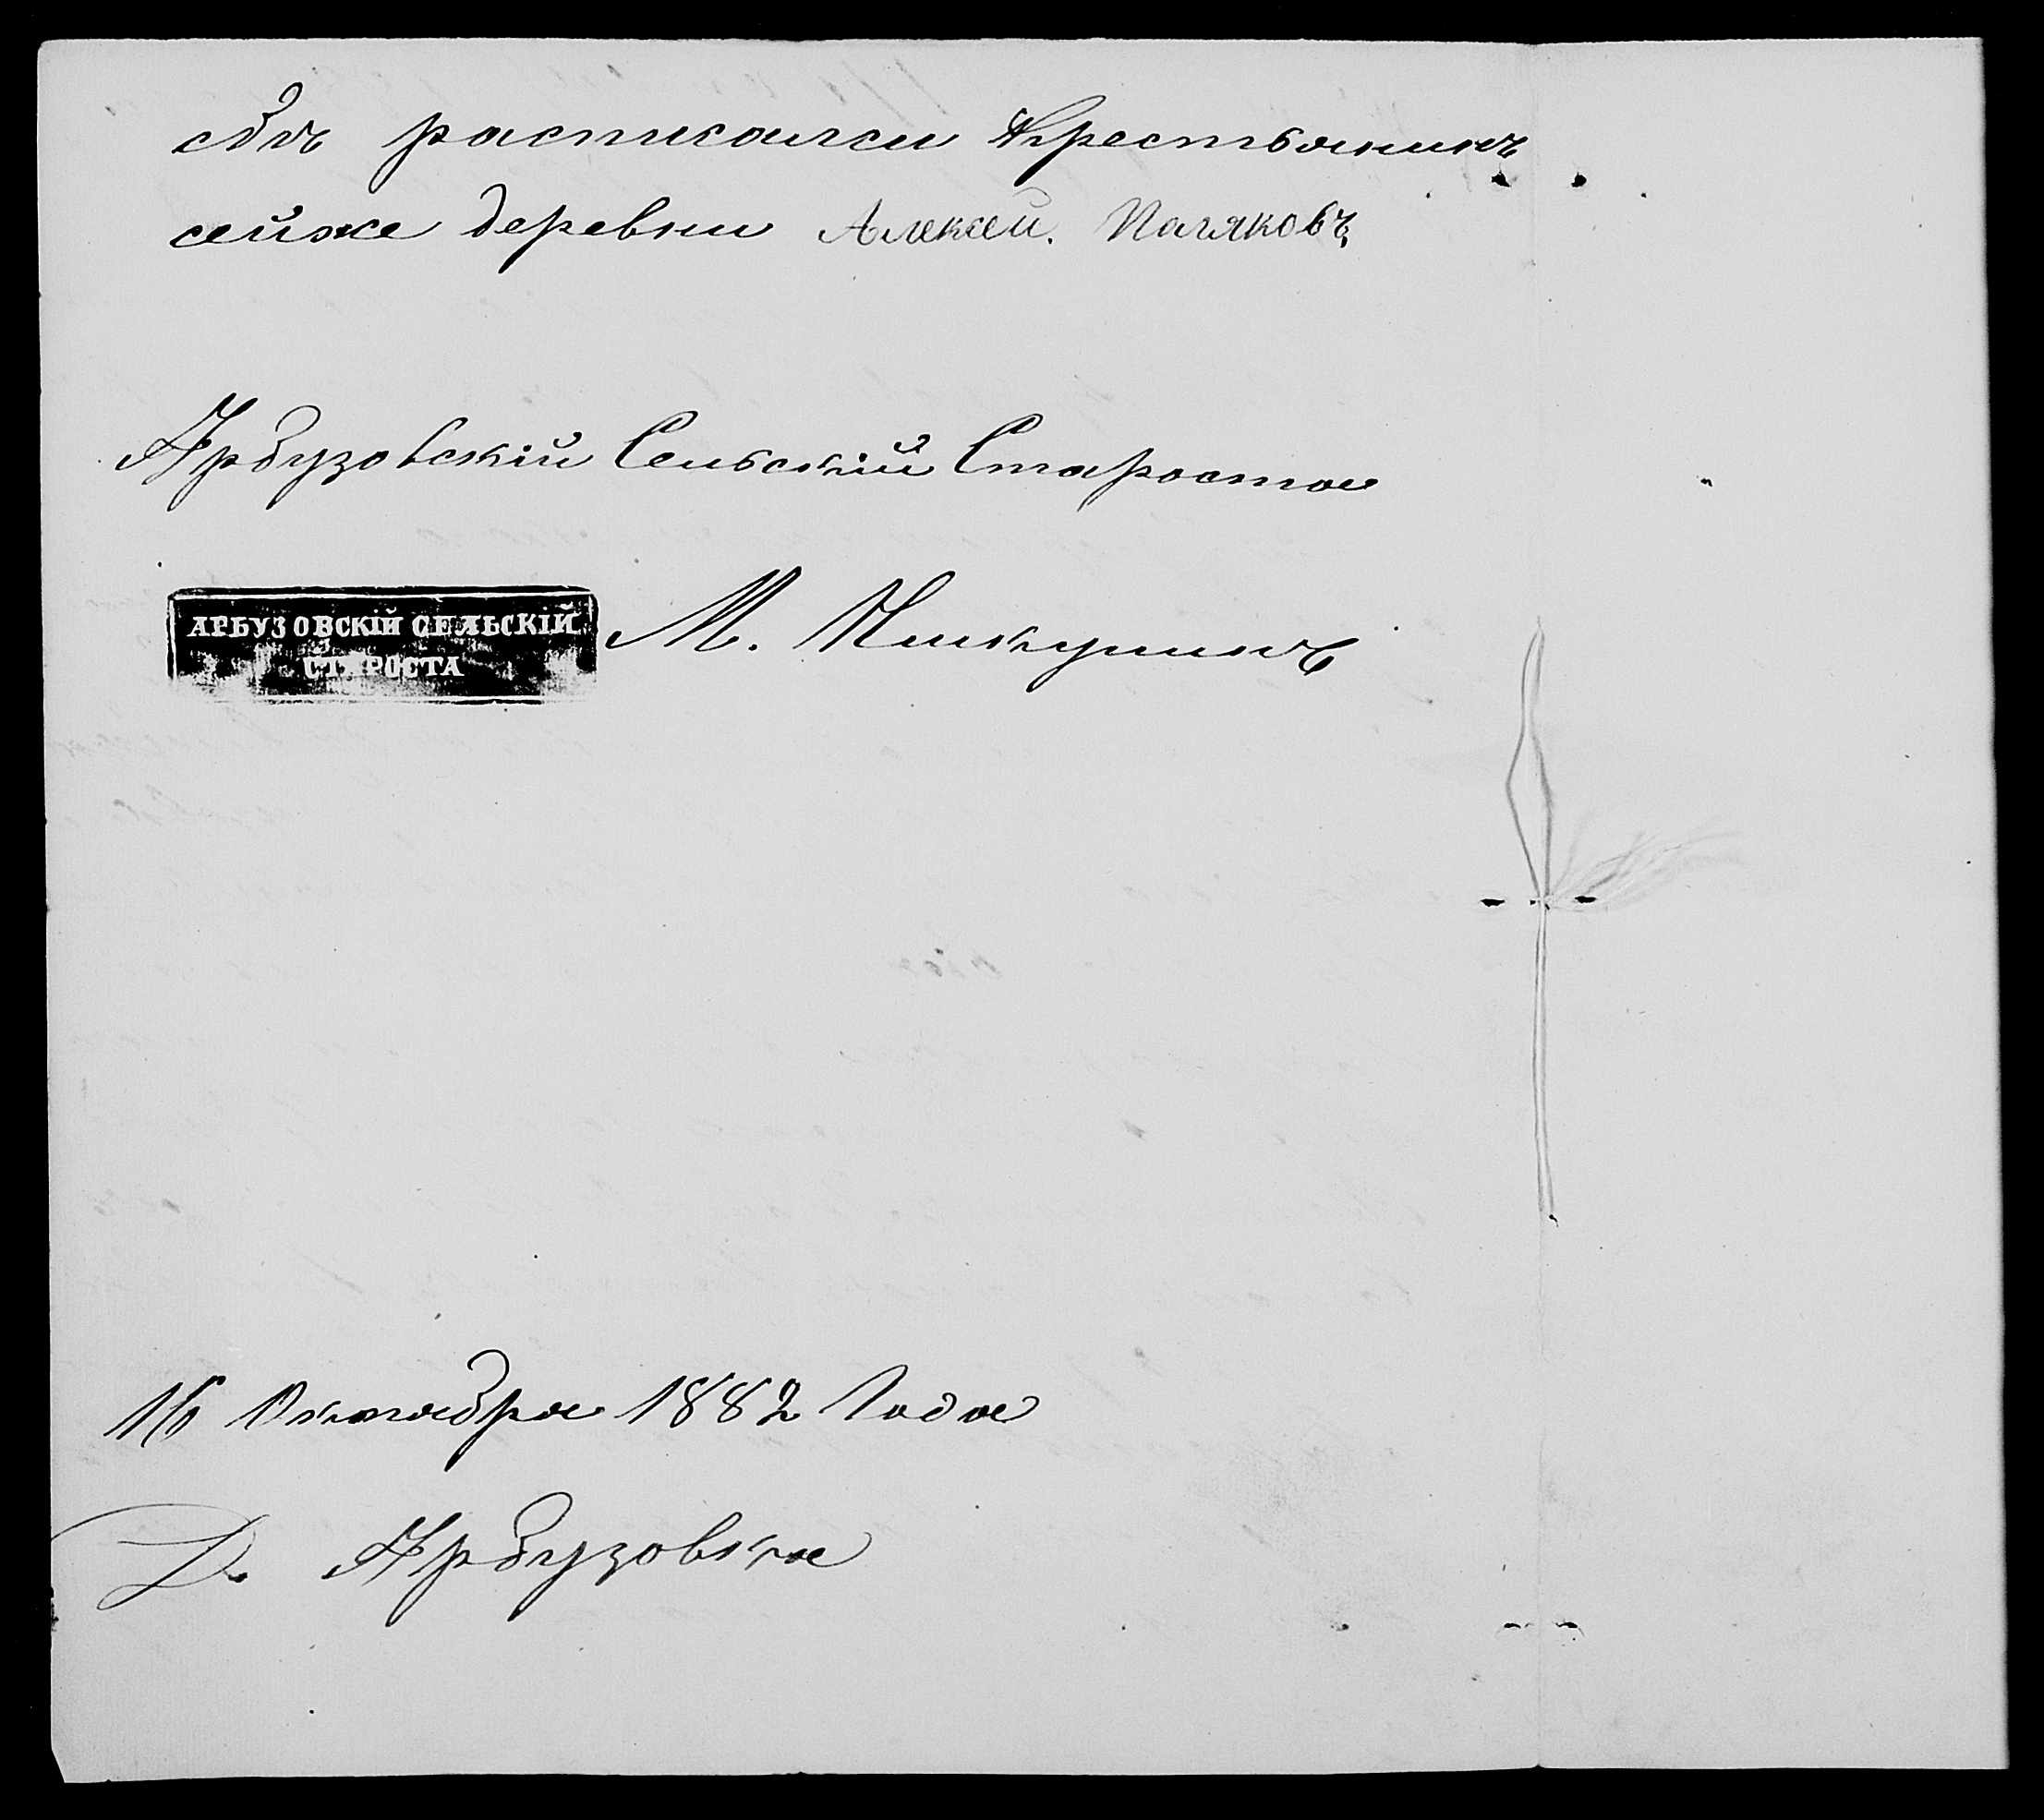 сѣмъ расписался Крестьянинъ
сейже деревни Алексей. Паляковъ
Арбузовскій Сельскій Староста
АРБУЗОВСКІЙ СЕЛЬСКІЙ
СТАРОСТА
М. Пикулинъ
16 Октября 1882 Года
Д. Арбузовка